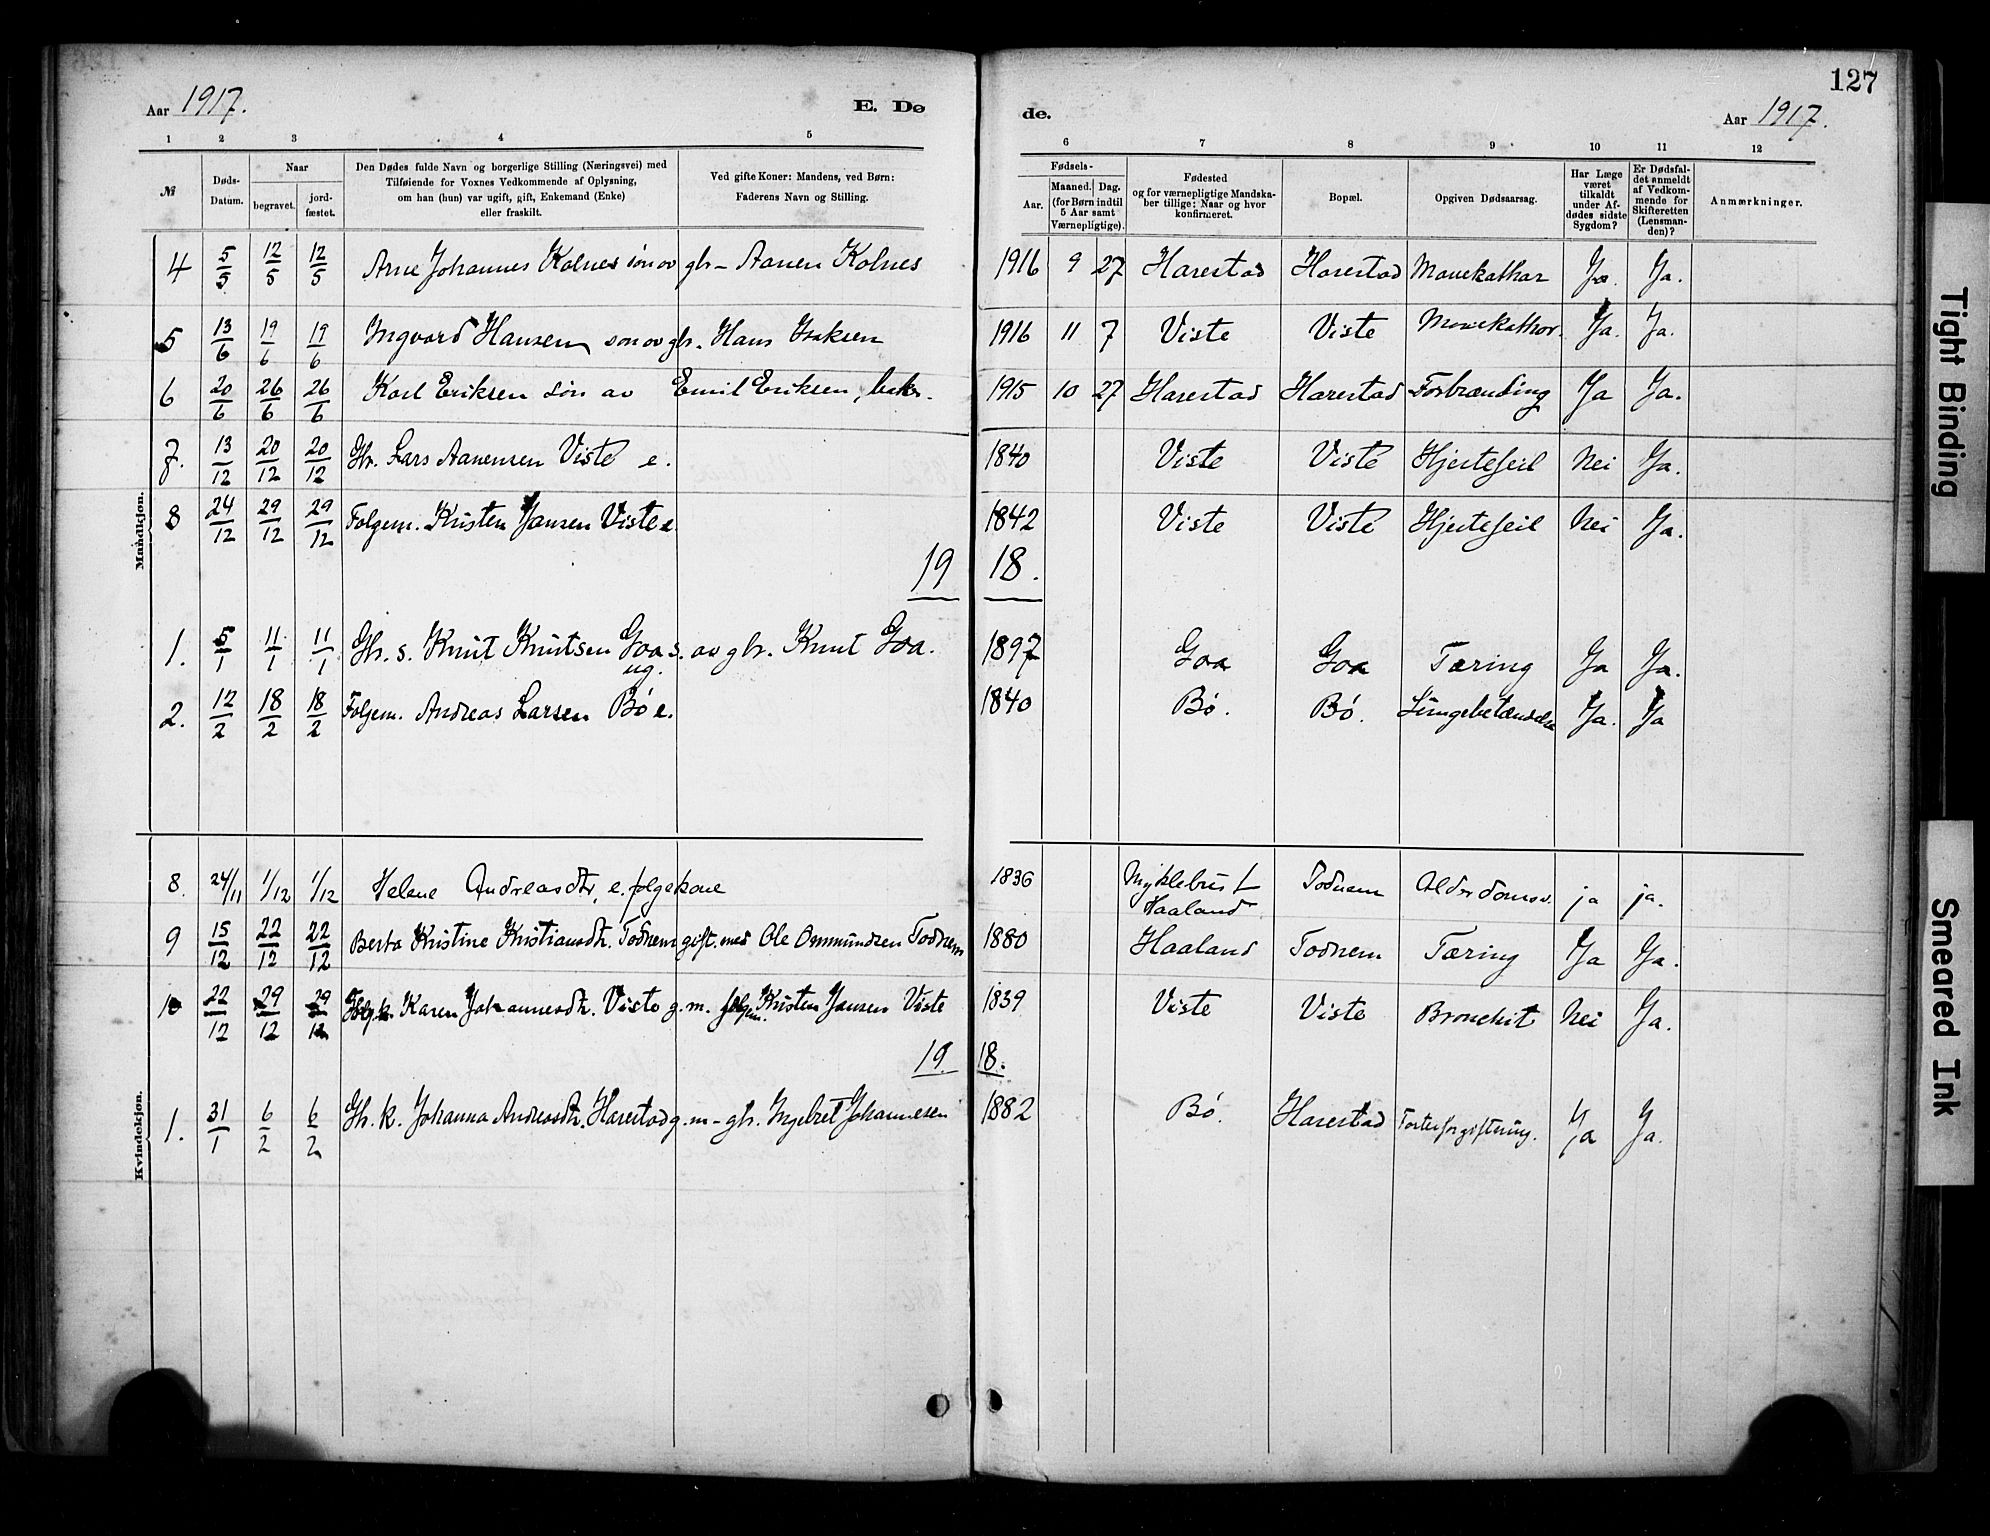 127
Aar 1917.
E. Dø
de.
Aar 1917.
1 2 3 4 5 6 7 8 9 10 11 12
№
Døds-
Datum.
Naar
begravet.
jord-
fæstet.
Den Dødes fulde Navn og borgerlige Stilling (Næringsvei) med
Tilføiende for Voxnes Vedkommende af Oplysning,
om han (hun) var ugift, gift, Enkemand (Enke)
eller fraskilt.
Ved gifte Koner: Mandens, ved Børn:
Faderens Navn og Stilling.
Fødsels-
Aar.
Maaned. Dag.
(for Børn indtil
5 Aar samt
Værnepligtige).
Fødested
og for værnepligtige Mandska-
ber tillige: Naar og hvor
konfirmeret.
Bopæl.
Opgiven Dødsaarsag.
Har Læge
været
tilkaldt
under Af-
dødes sidste
Sygdom?
Er Dødsfal-
det anmeldt
af Vedkom-
mende for
Skifteretten
(Lensman-
den)?
Anmærkninger.
Mandkjøn.
4 5/5 12/5 12/5 Arne Johannes Kolnes søn av gbr. Aanen Kolnes 1916 9 27 Harestad Harestad Mavekathar Ja. Ja.
5 13/6 19/6 19/6 Ingvard Hansen, søn av gbr. Hans Isaksen 1916 11 7 Viste Viste Mavekathar. Ja. Ja.
6 20/6 26/6 26/6 Karl Eriksen søn av Emil Eriksen, 1915 10 27 Harestad Harestad Forbrænding Ja Ja.
7. 13/12 20/12 20/12 Gbr. Lars Aanensen Viste e. 1840 Viste Viste Hjertefeil Nei Ja.
8 24/12 29/12 29/12 Folgem. Kristen Jansen Viste e. 1842 Viste Viste Hjertefeil Nei Ja.
19 18.
1. 5/1 11/1 11/1 Gbr. s. Knut Knutsen Goa s. av gbr. Knut Goa. 1897 Goa Goa Tæring Ja Ja.
ug.
2. 12/2 18/2 18/2 Folgem. Andreas Larsen Bø e. 1840 Bø. Bø. Lungebetændelse Ja. Ja
8. 24/11 1/12 1/12 Helene Andreasdtr, e. folgekone 1836 Myklebust Todnem Alderdomsv. ja ja.
Haaland
9 15/12 22/12 22/12 Berta Kristine Kristiansdtr. Todnem gift. med Ole Ommundsen Todnem 1880 Haaland Todnem Tæring Ja Ja.
10 22/12 29/12 29/12 Folg.k. Karen Johannesdtr. Viste g.m. folgem. Kristen Jansen Viste 1839 Viste Viste Bronchit Nei Ja.
19. 18.
Kvindekjøn.
1. 31/1 6/2 6/2 Gbr. k. Johanna Andreasdtr. Harestad g.m. gbr. Ingebret Johannesen 1882 Bø. Harestad Ja Ja.
Tight Binding
Smeared Ink